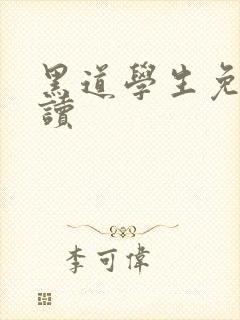 黑道學生免
讀
李可偉